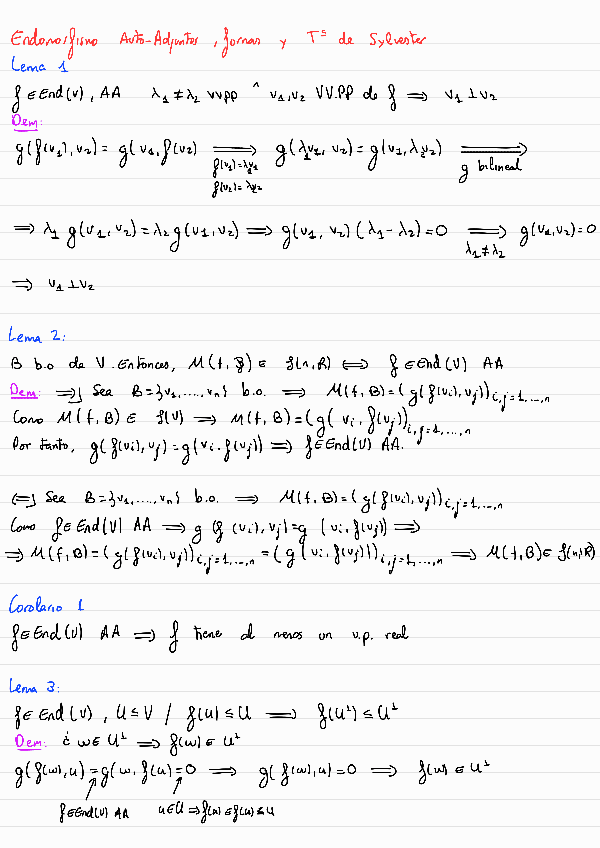 Endomorfismo Auto-Adjuntos, formas y Tª de Sylvester
Lema 1
f ∈ End(V), AA λ₁ ≠ λ₂ VVPP ^ v₁, v₂ VV.PP de f ⟹ v₁ ⊥ v₂
Dem:
g(f(v₁), v₂) = g(v₁, f(v₂) ⟹ g(λ₁v₁, v₂) = g(v₁, λ₂v₂) ⟹
f(v₁)=λ₁v₁ g bilineal
f(v₂)=λ₂v₂
⟹ λ₁ g(v₁, v₂) = λ₂ g(v₁, v₂) ⟹ g(v₁, v₂)(λ₁ - λ₂) = 0 ⟹ g(v₁, v₂) = 0
λ₁ ≠ λ₂
⟹ v₁ ⊥ v₂
Lema 2:
B b.o de V. Entonces, M(f, B) ∈ S(n, R) ⟺ f ∈ End(V) AA
Dem: ⟹] Sea B = {v₁, ..., vₙ} b.o. ⟹ M(f, B) = (g(f(vᵢ), vⱼ))ᵢ,ⱼ₌₁,...,ₙ
Como M(f, B) ∈ S(V) ⟹ M(f, B) = (g(vᵢ, f(vⱼ))ᵢ,ⱼ₌₁,...,ₙ
Por tanto, g(f(vᵢ), vⱼ) = g(vᵢ, f(vⱼ)) ⟹ f ∈ End(V) AA.
⟸] Sea B = {v₁, ..., vₙ} b.o. ⟹ M(f, B) = (g(f(vᵢ), vⱼ))ᵢ,ⱼ₌₁,...,ₙ
Como f ∈ End(V) AA ⟹ g(f(vᵢ), vⱼ) = g(vᵢ, f(vⱼ)) ⟹
⟹ M(f, B) = (g(f(vᵢ), vⱼ))ᵢ,ⱼ₌₁,...,ₙ = (g(vᵢ, f(vⱼ)))ᵢ,ⱼ₌₁,...,ₙ ⟹ M(f, B) ∈ S(n, R)
Corolario 1
f ∈ End(V) AA ⟹ f tiene al menos un v.p. real
Lema 3:
f ∈ End(V), U ≤ V / f(U) ≤ U ⟹ f(U^⊥) ≤ U^⊥
Dem: ¿ w ∈ U^⊥ ⟹ f(w) ∈ U^⊥
g(f(w), u) = g(w, f(u) = 0 ⟹ g(f(w), u) = 0 ⟹ f(w) ∈ U^⊥
f ∈ End(V) AA u ∈ U ⟹ f(u) ∈ f(U) ≤ U